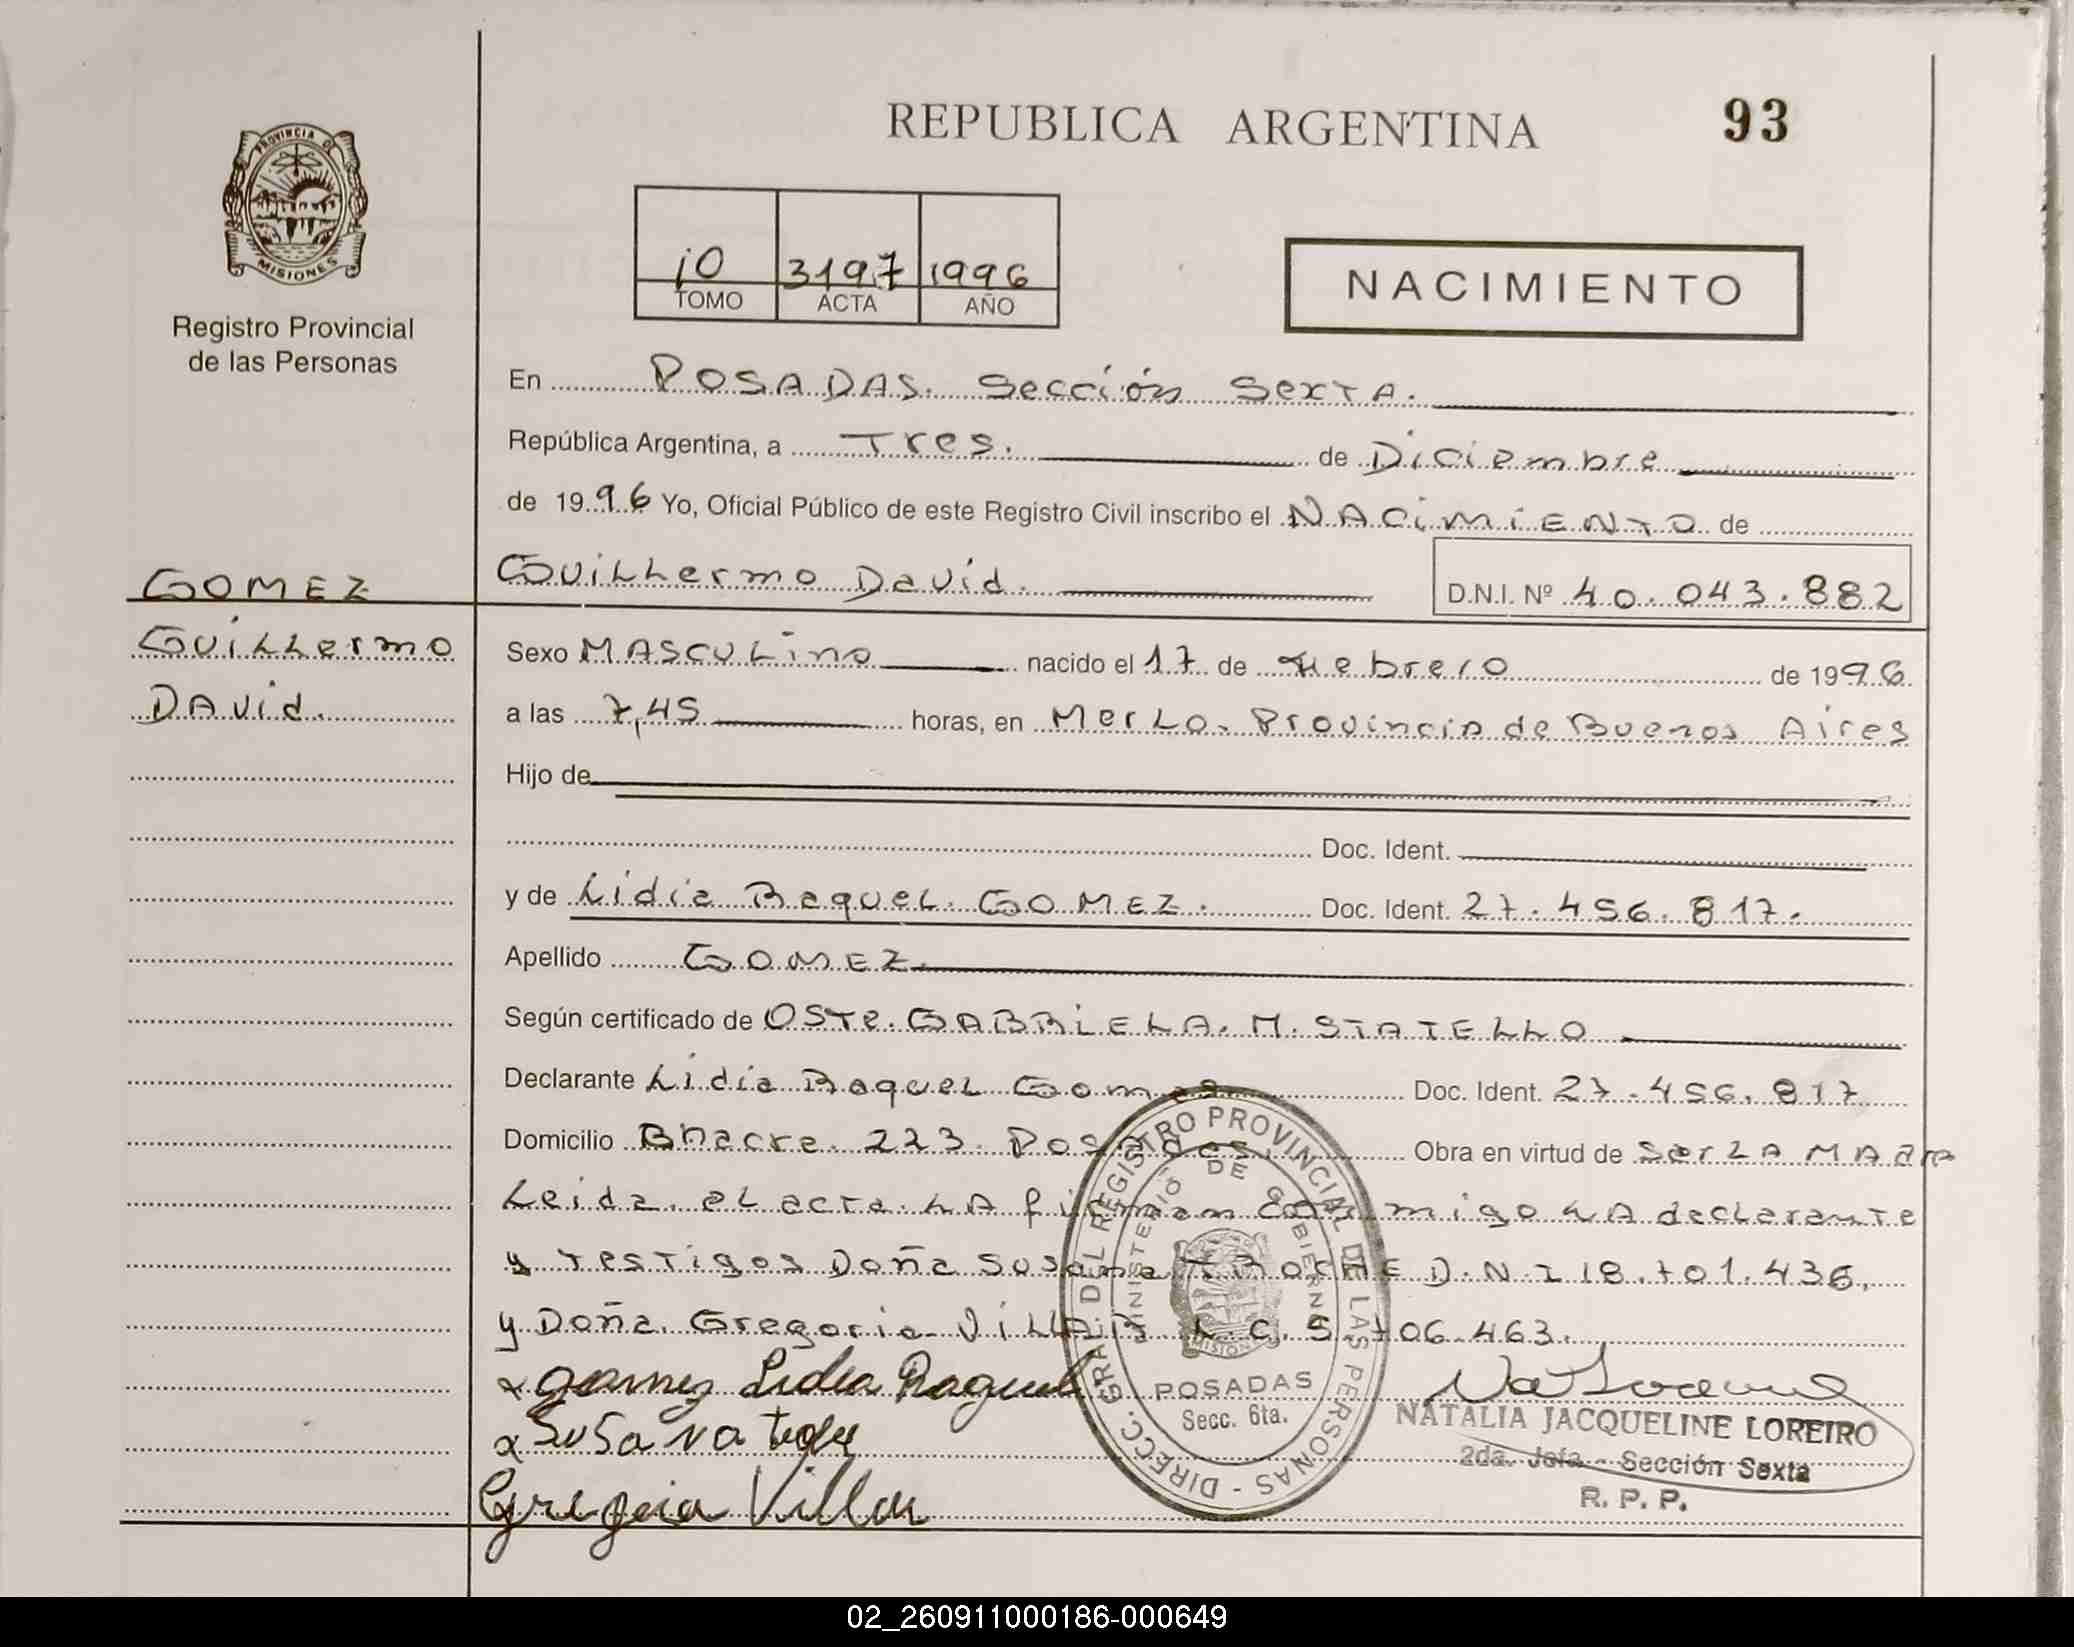 REPUBLICA ARGENTINA
93
PROVINCIA DE
MISIONES
Registro Provincial
de las Personas
10 3197 1996
TOMO ACTA AÑO
NACIMIENTO
En POSADAS. Sección Sexta.
República Argentina, a Tres. de Diciembre
de 1996 Yo, Oficial Público de este Registro Civil inscribo el NACIMIENTO de
Guillermo David.
D.N.I. Nº 40.043.882
GOMEZ
Guillermo
David.
Sexo MASCULino nacido el 17 de Febrero de 1996.
a las 7,45 horas, en Merlo. Provincia de Buenos Aires
Hijo de
Doc. Ident.
y de Lidia Raquel. GOMEZ. Doc. Ident. 27.456.817.
Apellido GOMEZ.
Según certificado de OSTe. GABRIELA. M. STATELLO
Declarante Lidia Raquel Gomez Doc. Ident. 27.456.817
Domicilio 223. Posadas. Obra en virtud de Ser LA MADRE
Leida. el acta. LA firman conmigo LA declarante
y Testigos Doña Susana D.N.I 18.701.436,
y Doña. Gregoria VILLAR L.C. 5.706.463.
Gomez Lidia Raquel
Susana
Gregoria Villar
DIRECC. GRAL. DEL REGISTRO PROVINCIAL DE LAS PERSONAS -
MINISTERIO DE GOBIERNO
MISIONES
POSADAS
Secc. 6ta.
NATALIA JACQUELINE LOREIRO
2da. Jefa - Sección Sexta
R. P. P.
02_260911000186-000649